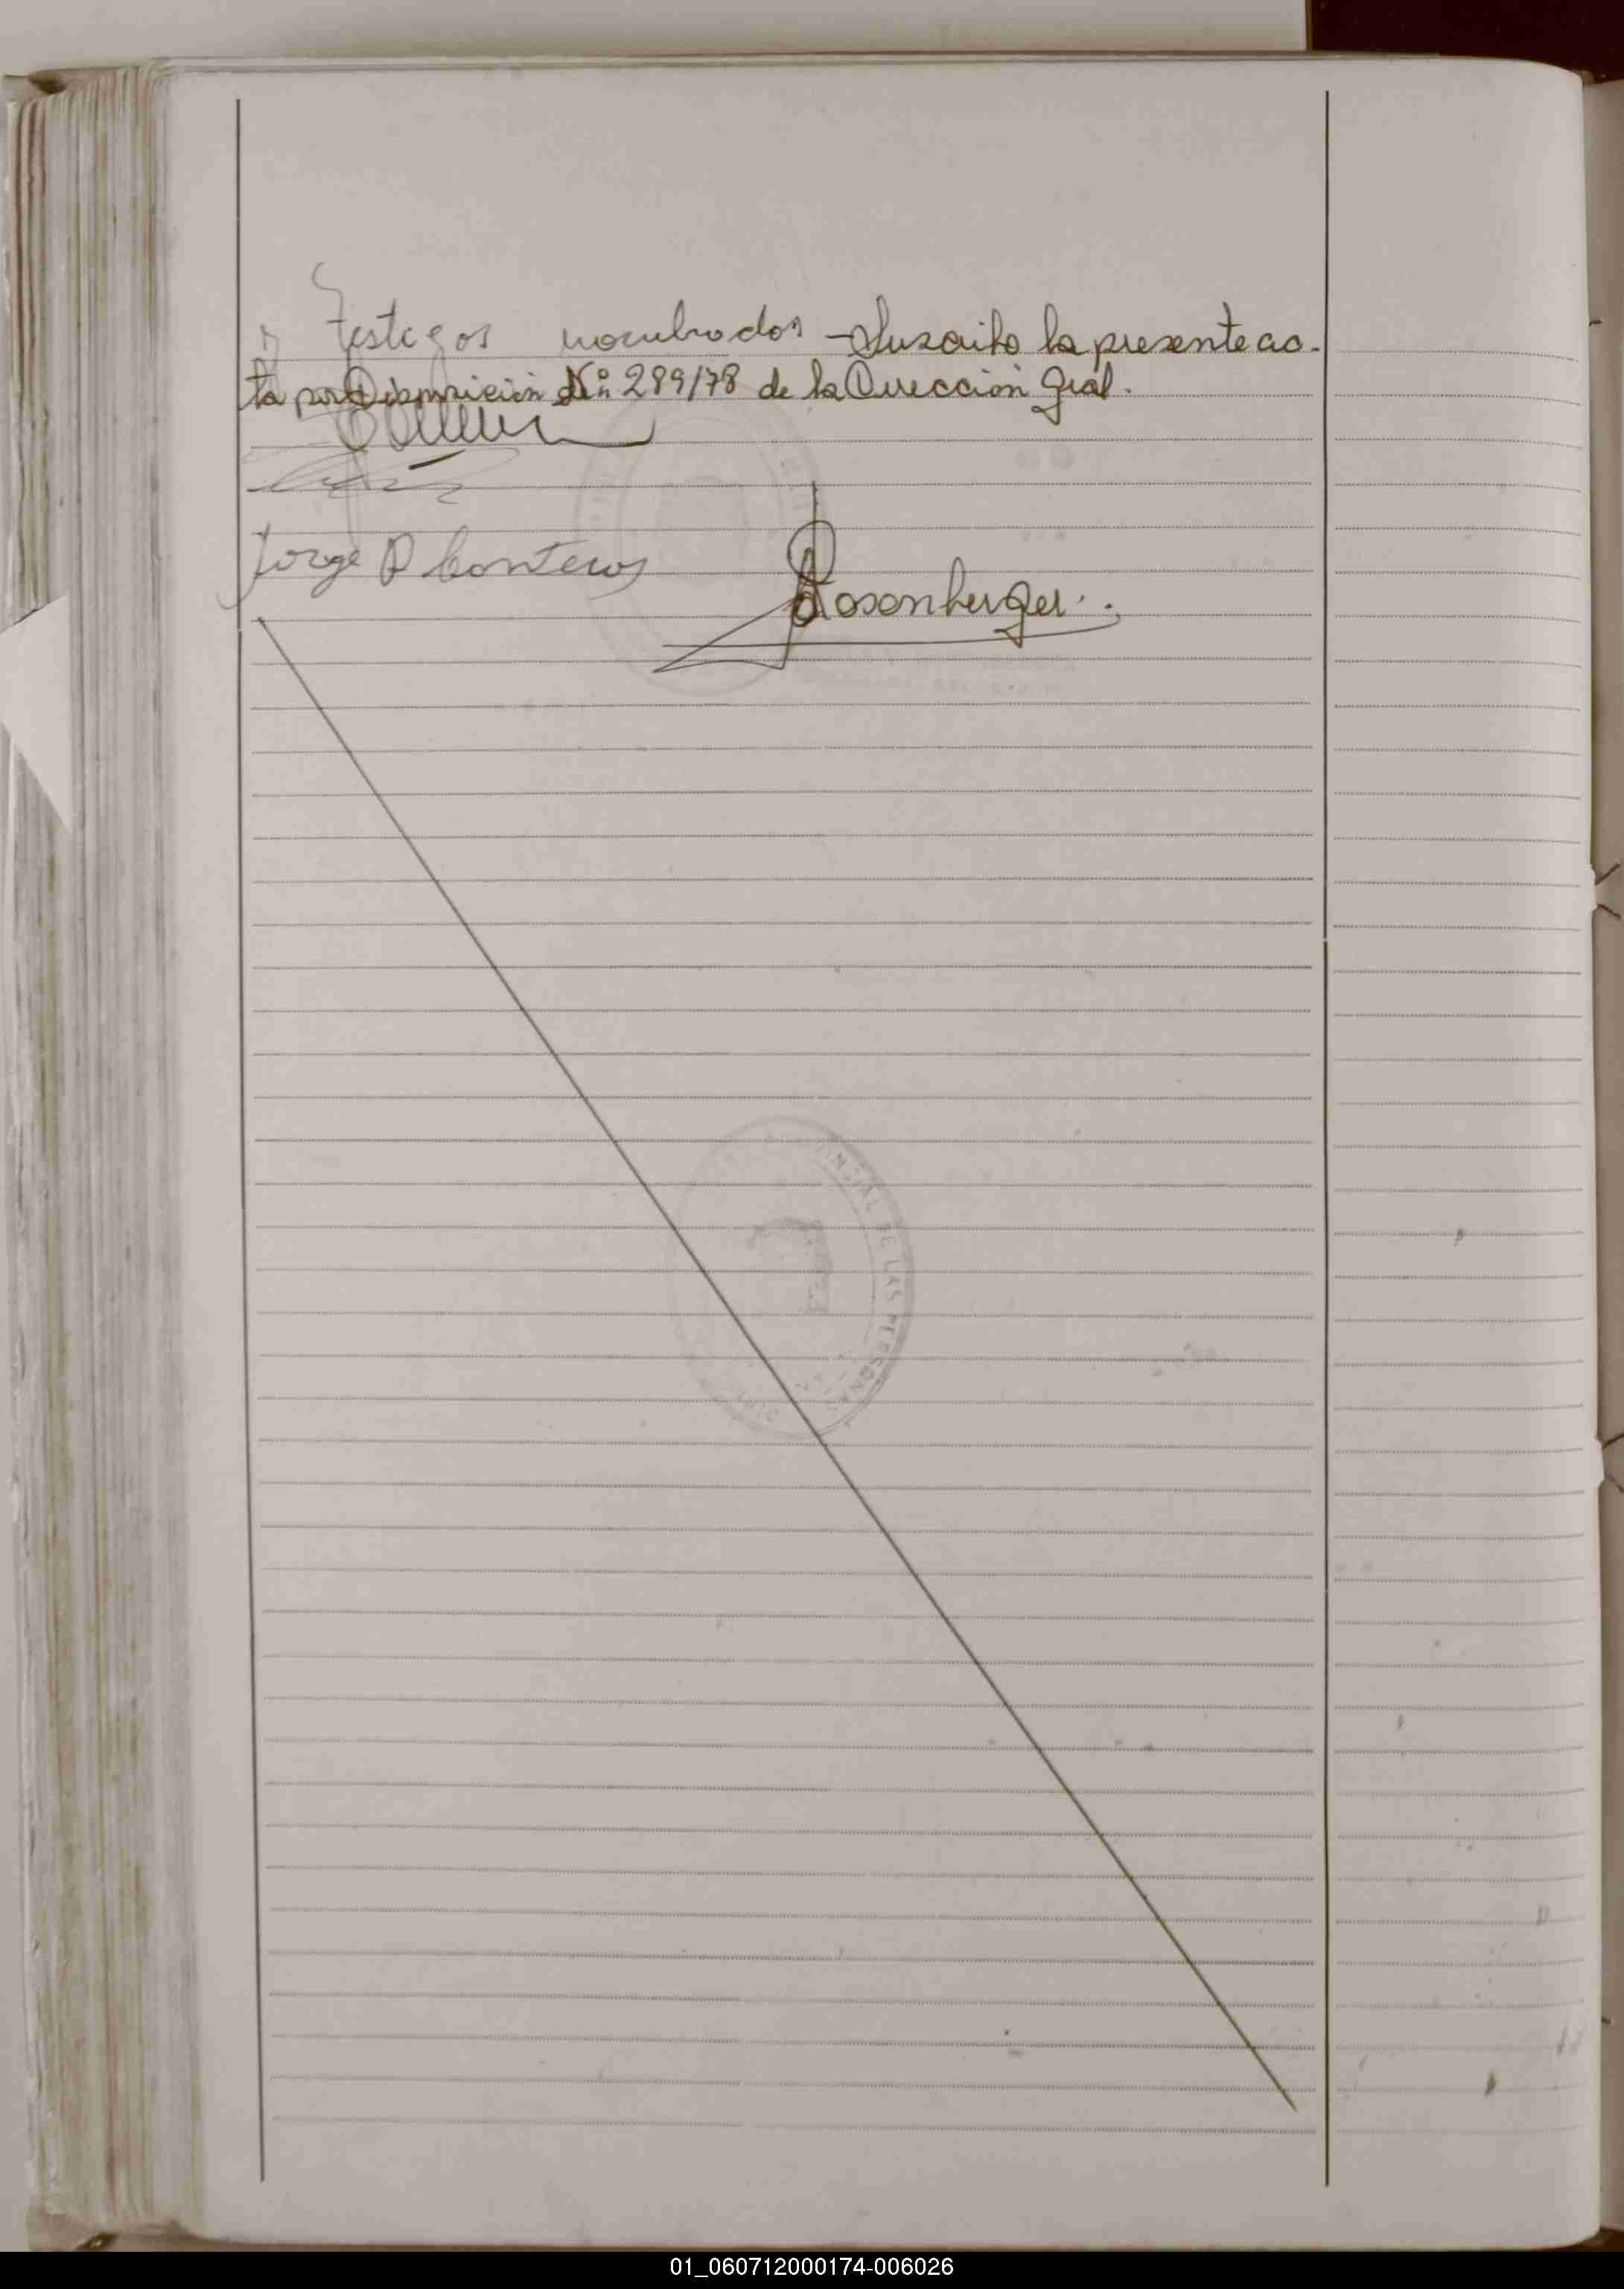 y testigos nombrados - Suscribo la presente ac-
ta por Disposición Nº 289/78 de la Dirección Gral.
Jorge D Conteros
Rosenberger
NCIAL DE LAS PERSONAS
01_060712000174-006026